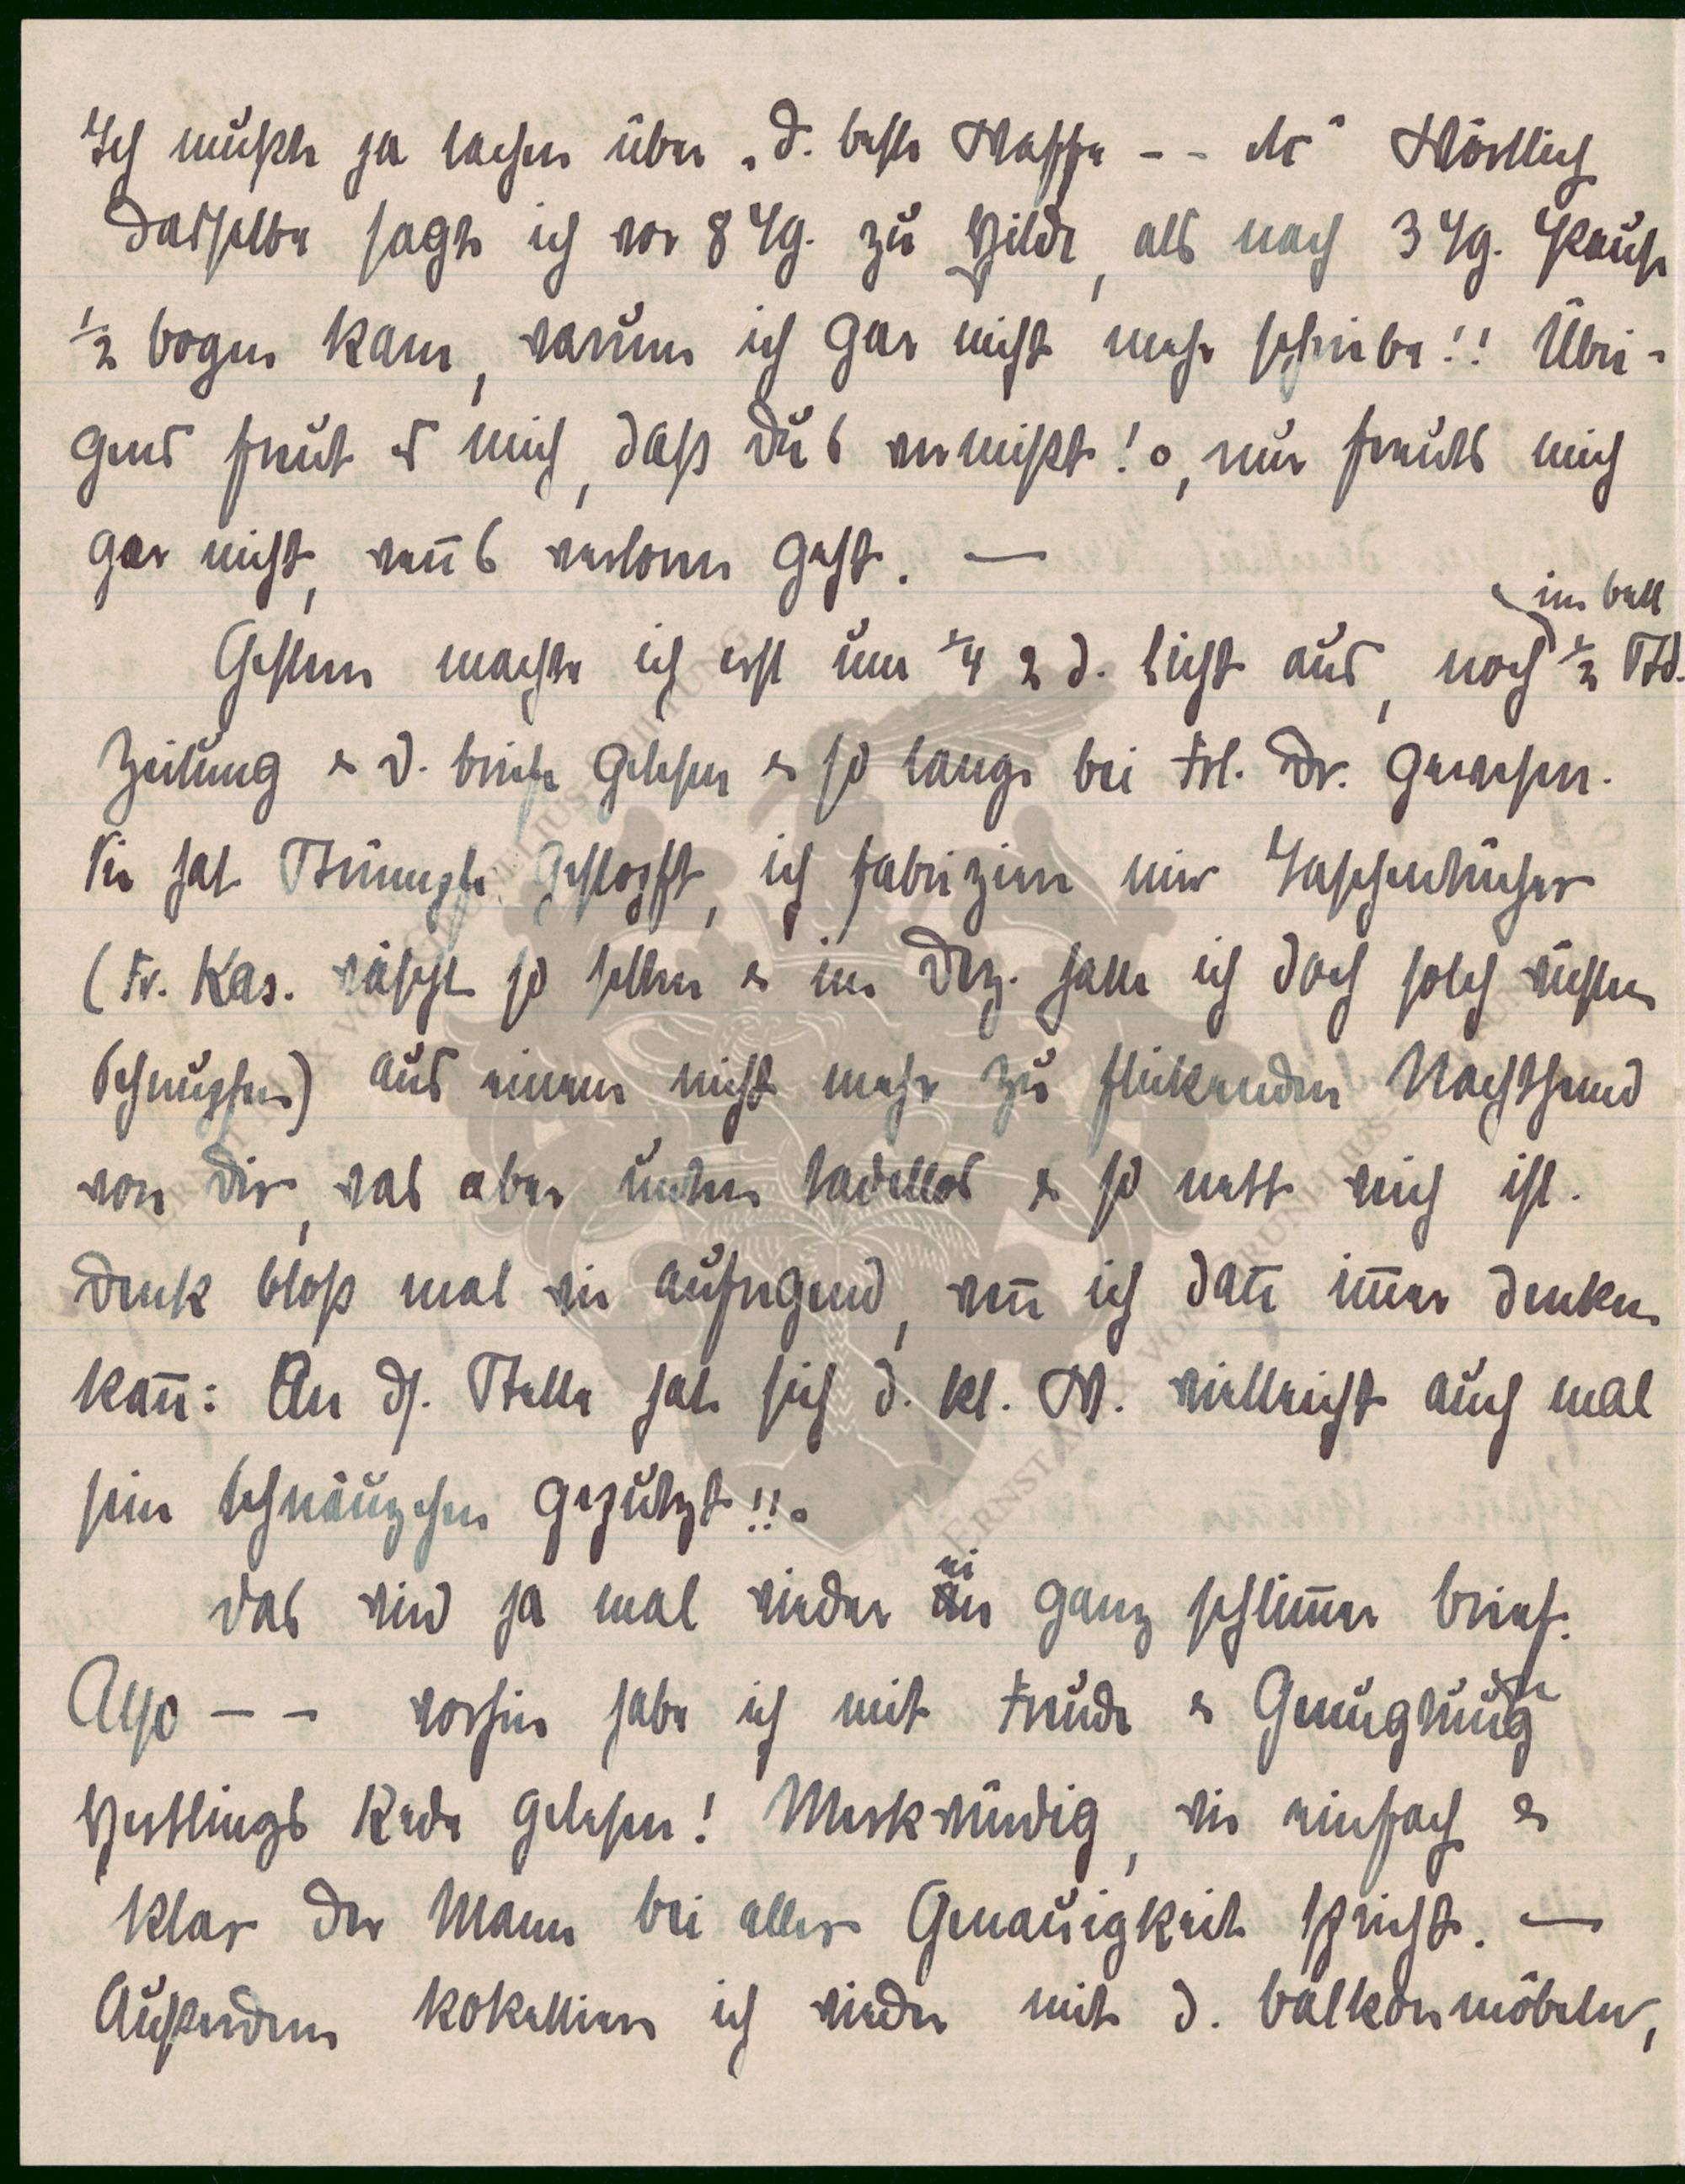 Ich mußte ja lachen über „d. beste Waffe -- etc“ Wörtlich
dasselbe sagte ich vor 8 Tg. zu Hilde, als nach 3 Tg. Pause
½ Bogen kam, warum ich gar nicht mehr schriebe!! Übri-
gens freut es mich, daß Du's vermißt!, nur freut's mich
gar nicht, wen̄s verloren geht. —
im Bett
Gestern machte ich erst um ¼ 2 d. Licht aus, noch ½ Std.
Zeitung & d. Briefe gelesen & so lange bei Frl. Dr. gewesen.
Sie hat Strümpfe gestopft, ich fabriziere mir Taschentücher
(Fr. Kas. wäscht so selten & im Dez. hatte ich doch solch wüsten
Schnupfen) aus einem nicht mehr zu flickenden Nachthemd
von Dir, das aber unten tadellos & so nett weich ist.
Denk bloß mal wie aufregend, wen̄ ich dan̄ im̄er denken
kan̄: An ds. Stelle hat sich d. kl. W. vielleicht auch mal
sein Schnäuzchen geputzt!!
Das wird ja mal wieder ein ganz schlim̄er Brief.
Also -- vorhin habe ich mit Freude & Genugtuung
Hertlings Rede gelesen! Merkwürdig, wie einfach &
klar der Mann bei aller Genauigkeit spricht. —
Außerdem kokettiere ich wieder mit d. Balkonmöbeln,
ERNST MAX VON GRUNELIUS-STIFTUNG